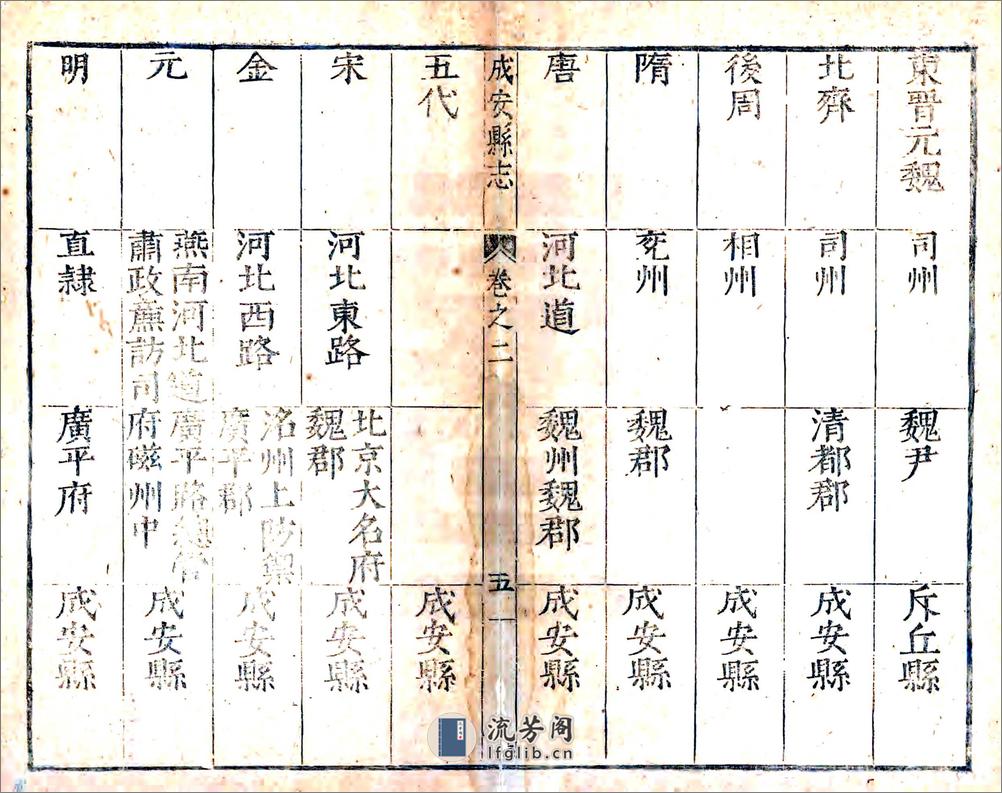 東晉元魏
司州
魏尹
斥丘縣
北齊
司州
清都郡
成安縣
後周
相州
成安縣
隋
兗州
魏郡
成安縣
唐
河北道
魏州魏郡
成安縣
成安縣志
卷之二
五
五代
成安縣
宋
河北東路
北京大名府
魏郡
成安縣
金
河北西路
洺州上防禦
廣平郡
成安縣
元
燕南河北道
肅政廉訪司
廣平路總管
府磁州中
成安縣
明
直隸
廣平府
成安縣
流芳阁
lfglib.cn